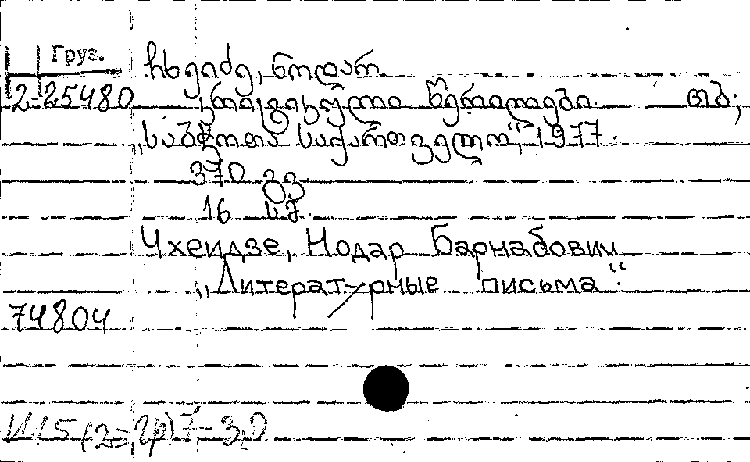 Груз.
2-25480
ჩხეიძე, ნოდარ.
კრიტიკული წერილები. თბ.,
„საბჭოთა საქართველო“, 1977.
370 გვ.
16 სმ.
Чхеидзе, Нодар Барнабович
„Литературные письма“.
74804